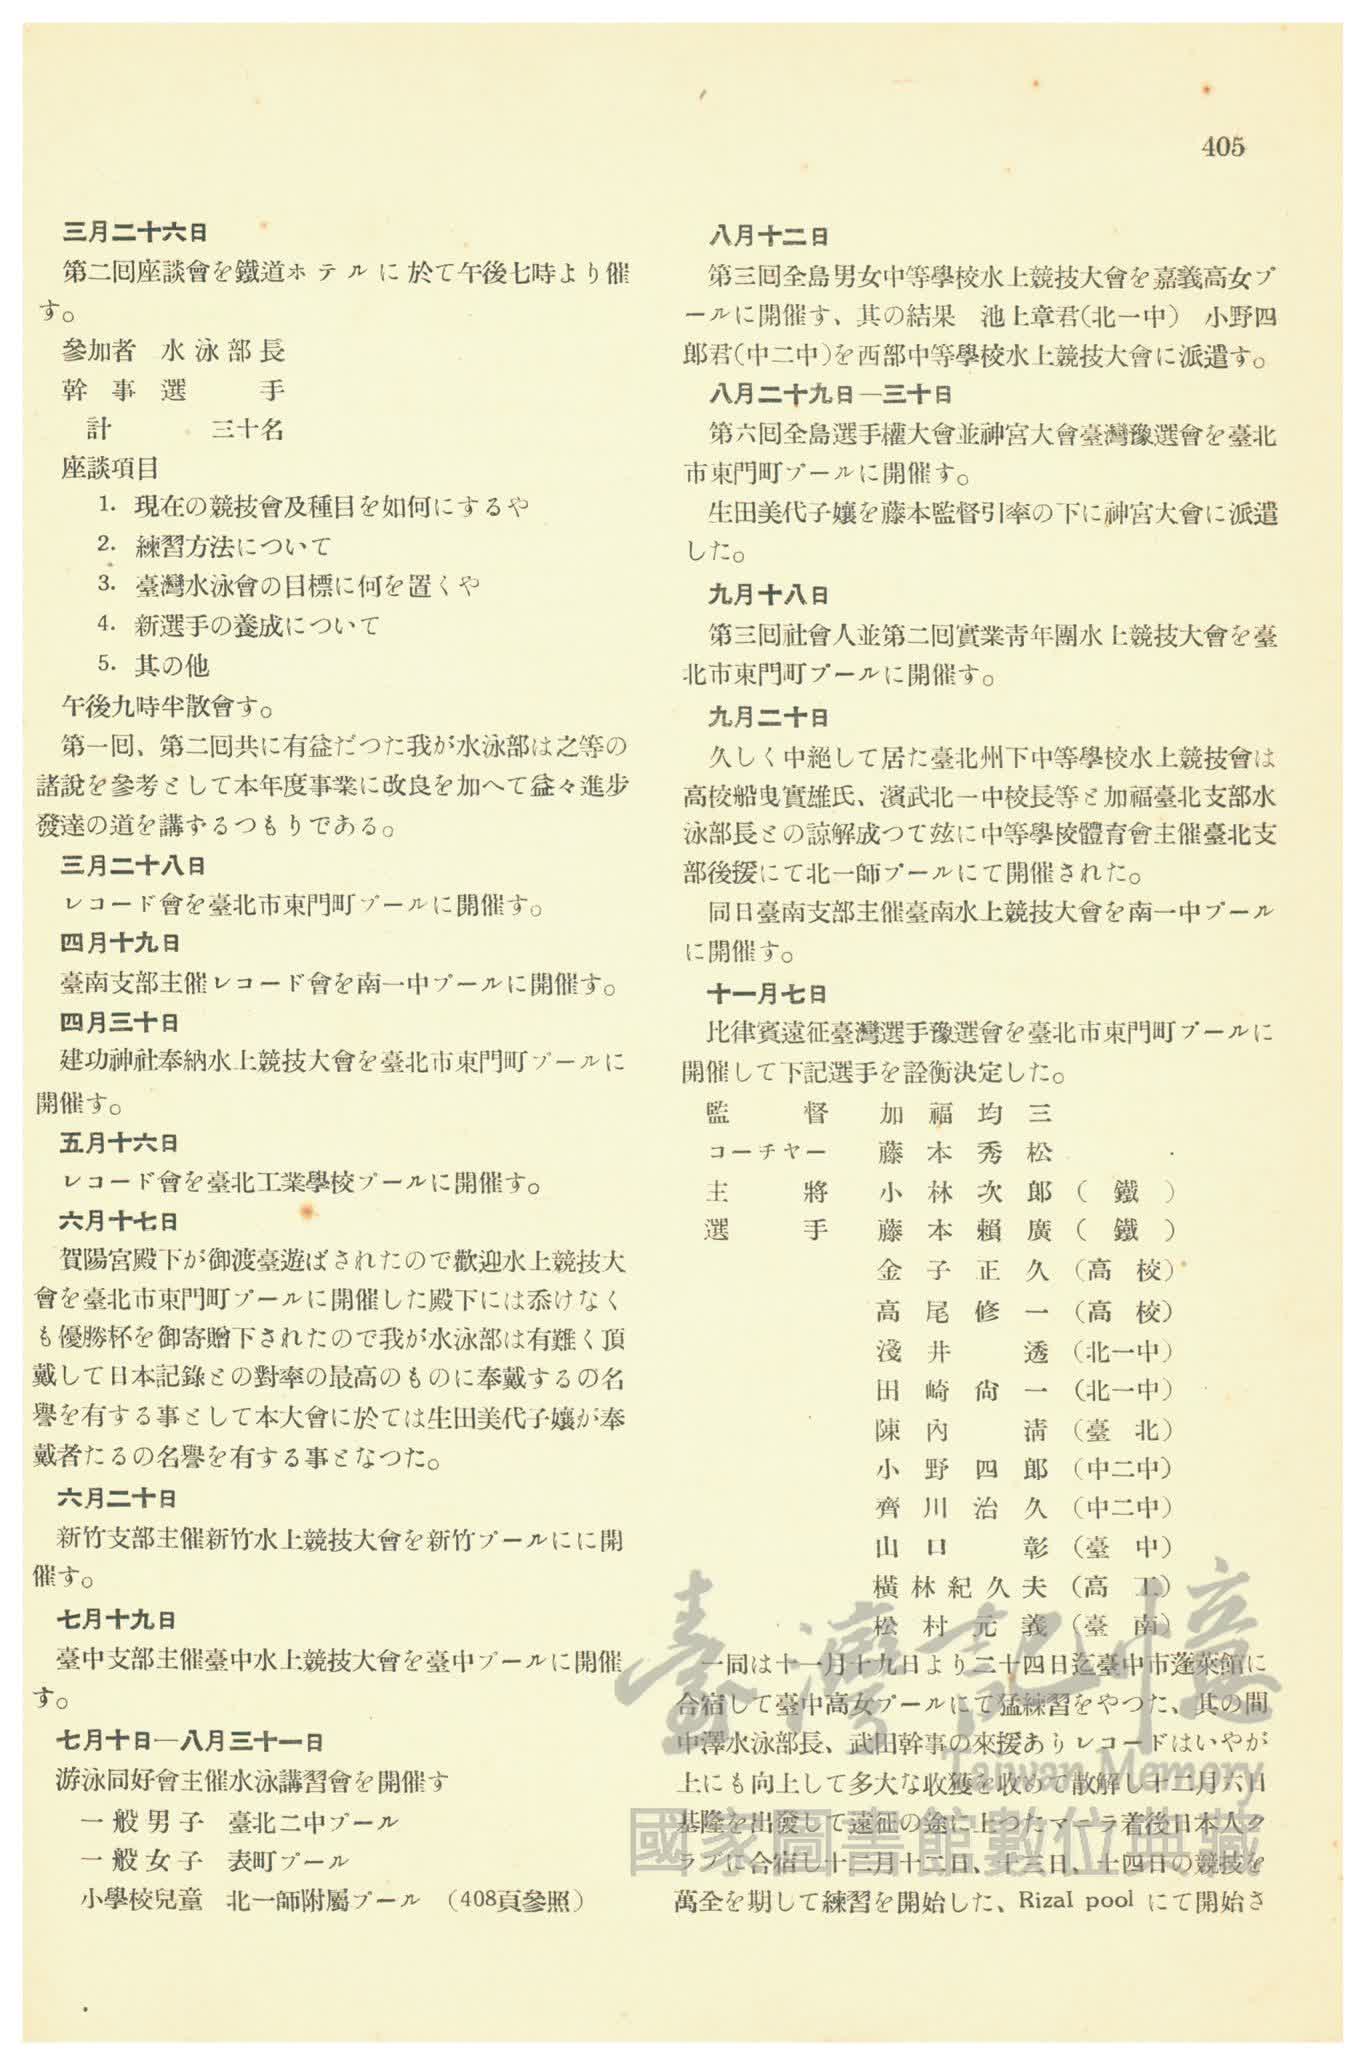 405
三月二十六日
第二回座談會を鐵道ホテルに於て午後七時より催
す。
參加者　水泳部長
幹事選　　手
計　　三十名
座談項目
1. 現在の競技會及種目を如何にするや
2. 練習方法について
3. 臺灣水泳會の目標に何を置くや
4. 新選手の養成について
5. 其の他
午後九時半散會す。
第一回、第二回共に有益だつた我が水泳部は之等の
諸說を參考として本年度事業に改良を加へて益々進步
發達の道を講ずるつもりである。
三月二十八日
レコード會を臺北市東門町プールに開催す。
四月十九日
臺南支部主催レコード會を南一中プールに開催す。
四月三十日
建功神社奉納水上競技大會を臺北市東門町プールに
開催す。
五月十六日
レコード會を臺北工業學校プールに開催す。
六月十七日
賀陽宮殿下が御渡臺遊ばされたので歡迎水上競技大
會を臺北市東門町プールに開催した殿下には忝けなく
も優勝杯を御寄贈下されたので我が水泳部は有難く頂
戴して日本記錄との對率の最高のものに奉戴するの名
譽を有する事として本大會に於ては生田美代子孃が奉
戴者たるの名譽を有する事となつた。
六月二十日
新竹支部主催新竹水上競技大會を新竹プールにに開
催す。
七月十九日
臺中支部主催臺中水上競技大會を臺中プールに開催
す。
七月十日—八月三十一日
游泳同好會主催水泳講習會を開催す
一般男子　臺北二中プール
一般女子　表町プール
小學校兒童　北一師附屬プール　（408頁參照）
八月十二日
第三回全島男女中等學校水上競技大會を嘉義高女プ
ールに開催す、其の結果　池上章君（北一中）　小野四
郎君（中二中）を西部中等學校水上競技大會に派遣す。
八月二十九日—三十日
第六回全島選手權大會並神宮大會臺灣豫選會を臺北
市東門町プールに開催す。
生田美代子孃を藤本監督引率の下に神宮大會に派遣
した。
九月十八日
第三回社會人並第二回實業靑年團水上競技大會を臺
北市東門町プールに開催す。
九月二十日
久しく中絕して居た臺北州下中等學校水上競技會は
高校船曳實雄氏、濱武北一中校長等と加福臺北支部水
泳部長との諒解成つて玆に中等學校體育會主催臺北支
部後援にて北一師プールにて開催された。
同日臺南支部主催臺南水上競技大會を南一中プール
に開催す。
十一月七日
比律賓遠征臺灣選手豫選會を臺北市東門町プールに
開催して下記選手を詮衡決定した。
監　　督　加福均三
コーチャー　藤本秀松
主　　將　小林次郎（鐵）
選　　手　藤本賴廣（鐵）
金子正久（高校）
高尾修一（高校）
淺井　透（北一中）
田崎尙一（北一中）
陳內　淸（臺北）
小野四郎（中二中）
齊川治久（中二中）
山口　彰（臺中）
橫林紀久夫（高工）
松村元義（臺南）
一同は十一月十九日より二十四日迄臺中市蓬萊館に
合宿して臺中高女プールにて猛練習をやつた、其の間
中澤水泳部長、武田幹事の來援ありレコードはいやが
上にも向上して多大な收獲を收めて散解し十二月六日
基隆を出發して遠征の途に上つたマニラ着後日本人ク
ラブに合宿し十二月十二日、十三日、十四日の競技を
萬全を期して練習を開始した、Rizal pool にて開始さ
臺灣記憶
Taiwan Memory
國家圖書館數位典藏